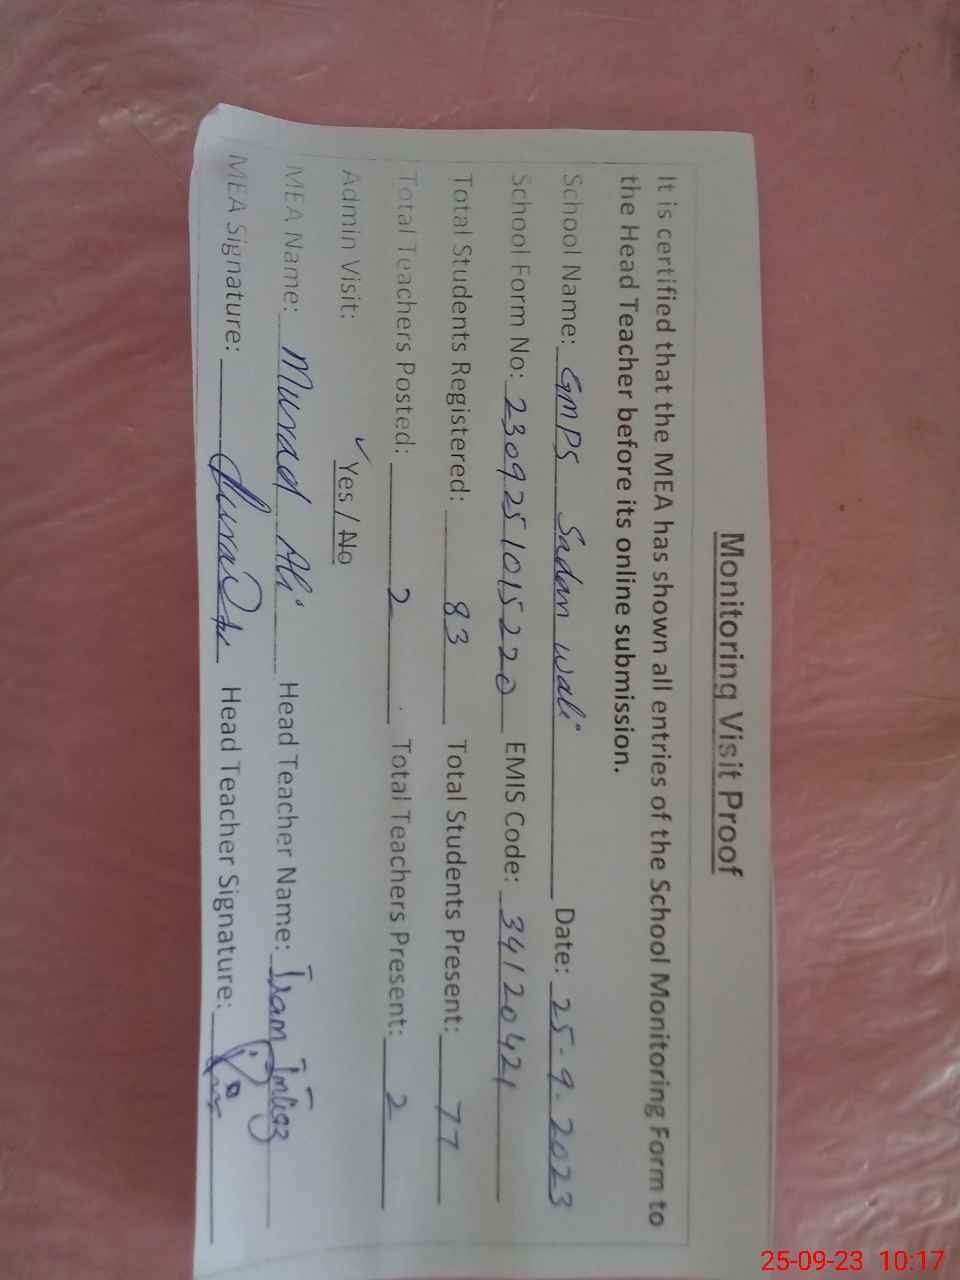 Monitoring Visit Proof
It is certified that the MEA has shown all entries of the School Monitoring Form to
the Head Teacher before its online submission.
School Name: GMPS Sadan Wali Date: 25-9-2023
School Form No: 2309251015220 EMIS Code: 34120421
Total Students Registered: 83 Total Students Present: 77
Total Teachers Posted: 2 Total Teachers Present: 2
Admin Visit: ✓Yes / No
MEA Name: Murad Ali Head Teacher Name: Iram Imtiaz
MEA Signature: Head Teacher Signature:
25-09-23 10:17